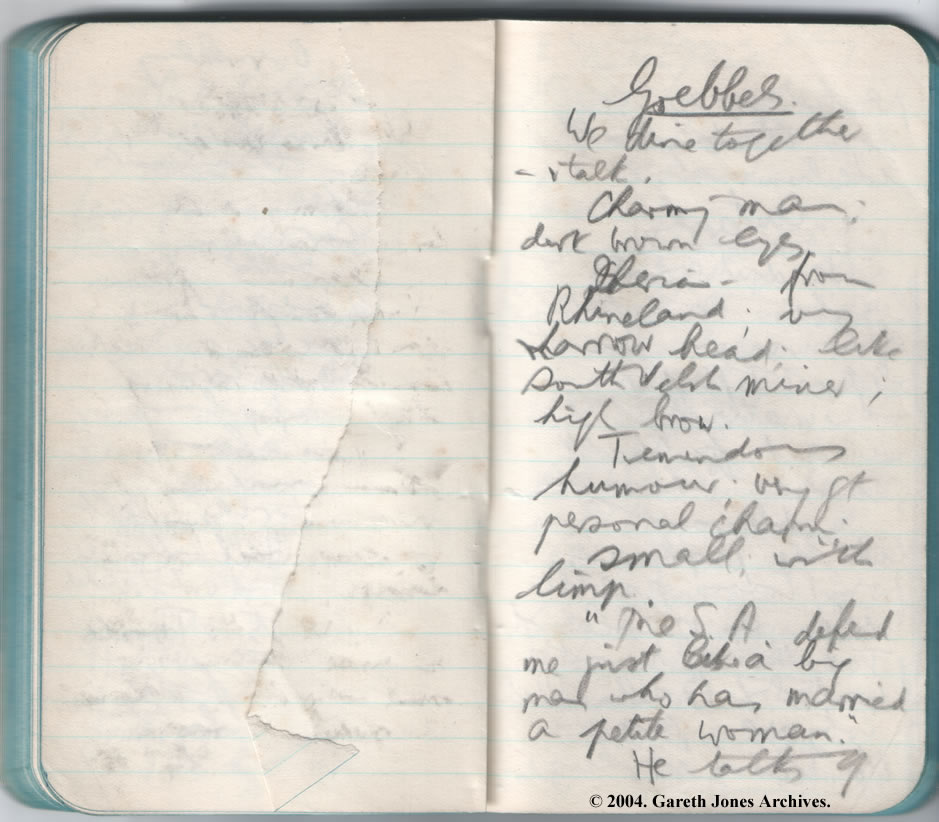 Goebbels.
We dine together
- & talk.
Charming man;
dark brown eyes,
Iberian - from
Rhineland; very
narrow head; like
South Welsh miner;
high brow.
Tremendous
humour; very gt
personal charm.
small, with
limp.
"The S.A. defend
me just like a big
man who has married
a petite woman."
He talks of
© 2004. Gareth Jones Archives.